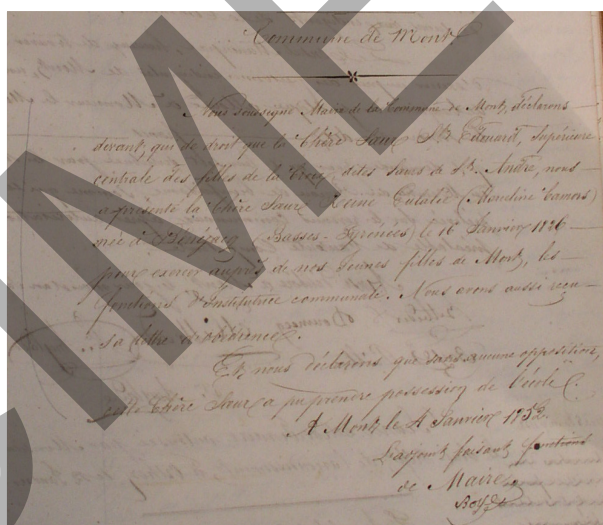 Commune de Mont,
Nous soussigné Maire de la Commune de Mont, déclarons
devant, que de droit que la Chère Sœur St. Edouard, Supérieure
centrale des filles de la Croix, dites Sœurs de St. André, nous
a présenté la Chère Sœur Reine Eulalie (Mondine Camors)
née à Bénéjacq (Basses-Pyrénées) le 16 Janvier 1826
pour exercer auprès de nos jeunes filles de Mont, les
fonctions d'Institutrice communale. Nous avons aussi reçu
sa lettre d'obédience.
Et nous déclarons que sans aucune opposition,
Chère Sœur a pu prendre possession de l'école.
A Mont, le 4 Janvier
L'adjoint faisant fonctions
de Maire